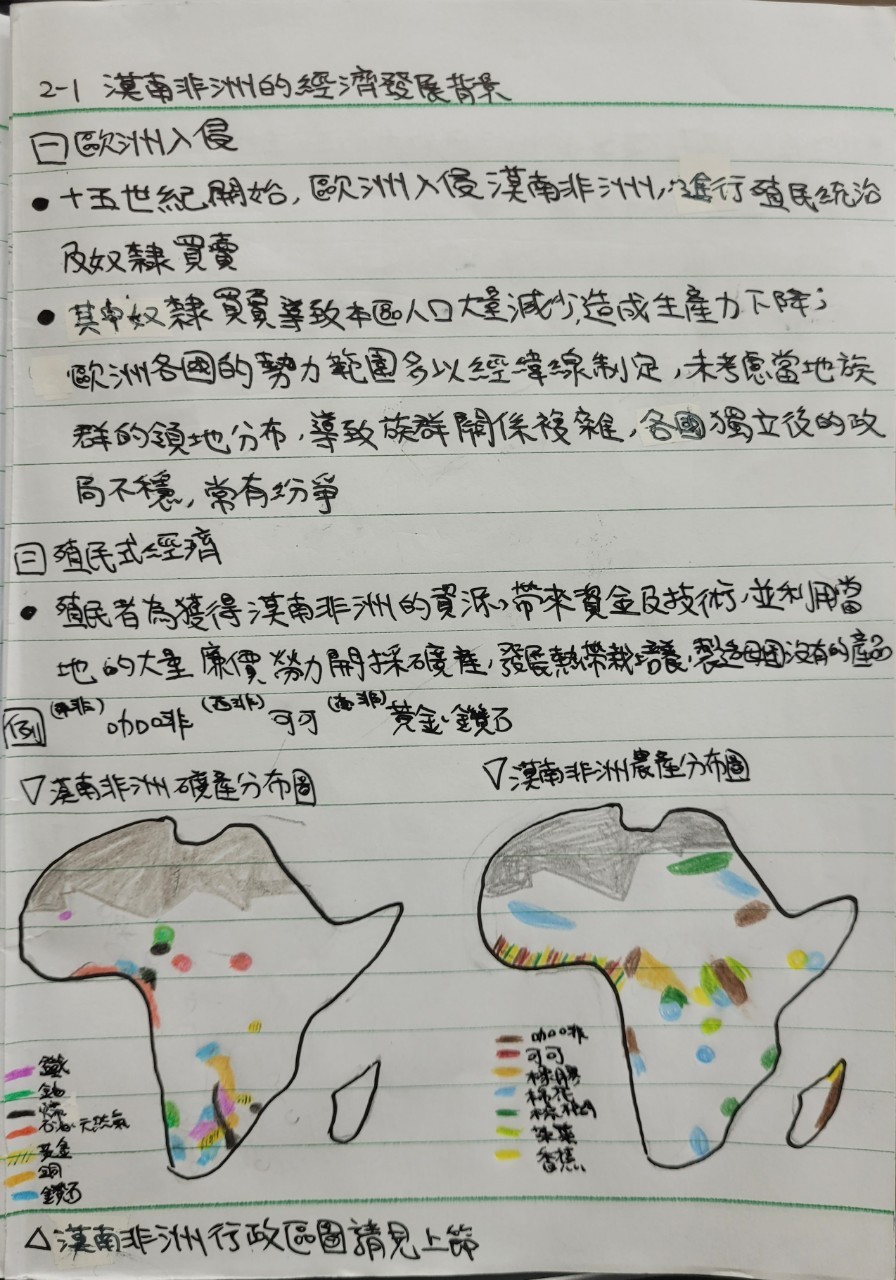 2-1 漠南非洲的經濟發展背景
一 歐洲入侵
• 十五世紀開始,歐洲入侵漠南非洲,進行殖民統治
及奴隸買賣
• 其中奴隸買賣導致本區人口大量減少,造成生產力下降;
歐洲各國的勢力範圍多以經緯線制定,未考慮當地族
群的領地分布,導致族群關係複雜,各國獨立後的政
局不穩,常有紛爭
二 殖民式經濟
• 殖民者為獲得漠南非洲的資源,帶來資金及技術,並利用當
地的大量廉價勞力開採礦產,發展熱帶栽培業,製造母國沒有的產品
例 (東非)咖啡 (西非)可可 (南非)黃金、鑽石
▽漠南非洲礦產分布圖
▽漠南非洲農產分布圖
鐵
鈾
煤
石油、天然氣
黃金
銅
鑽石
咖啡
可可
橡膠
棉花
茶葉
香蕉
△漠南非洲行政區圖請見上節